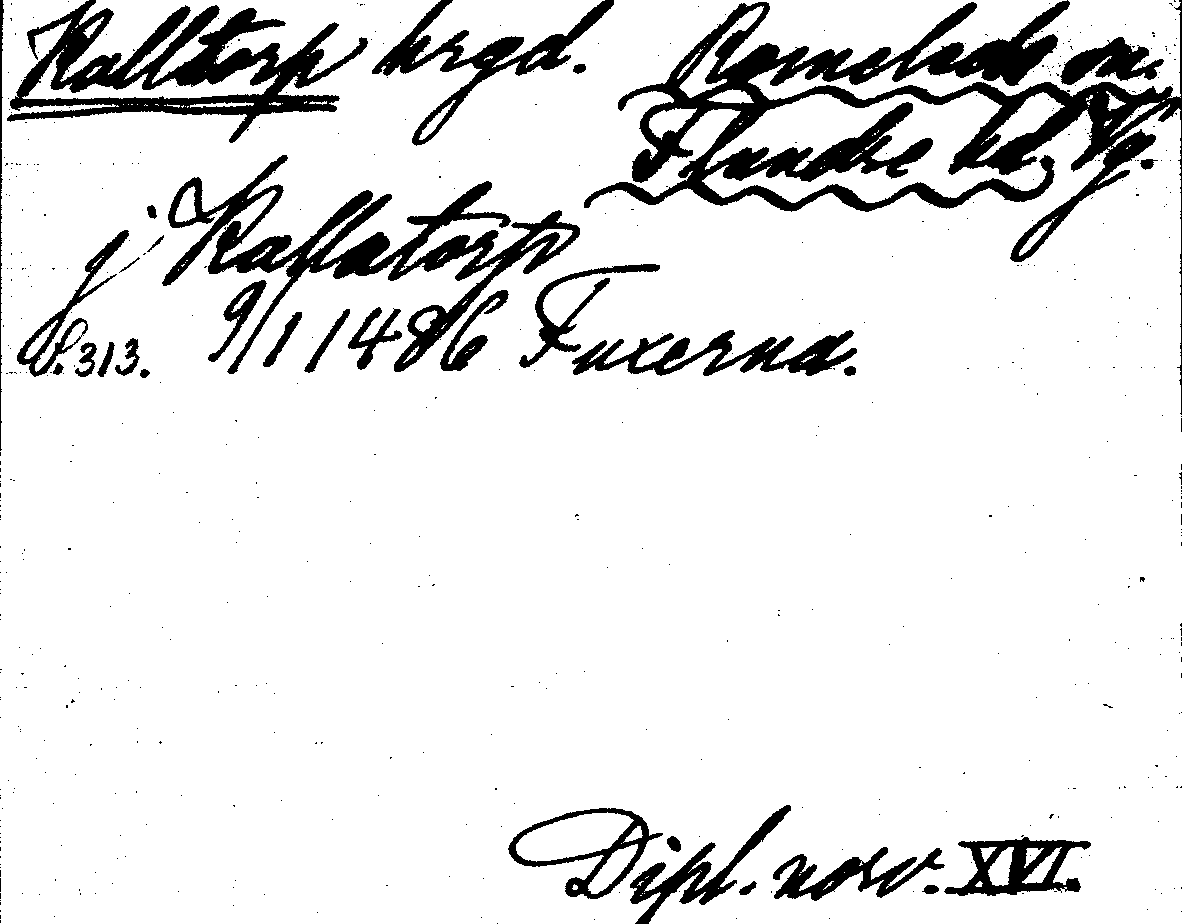 Kalltorp hrgd. Romeleds sn.
Flundre hd, Vg.
j Kallatorp
S. 313. 9/1 1486 Fuxerna.
Dipl. norv. XVI.